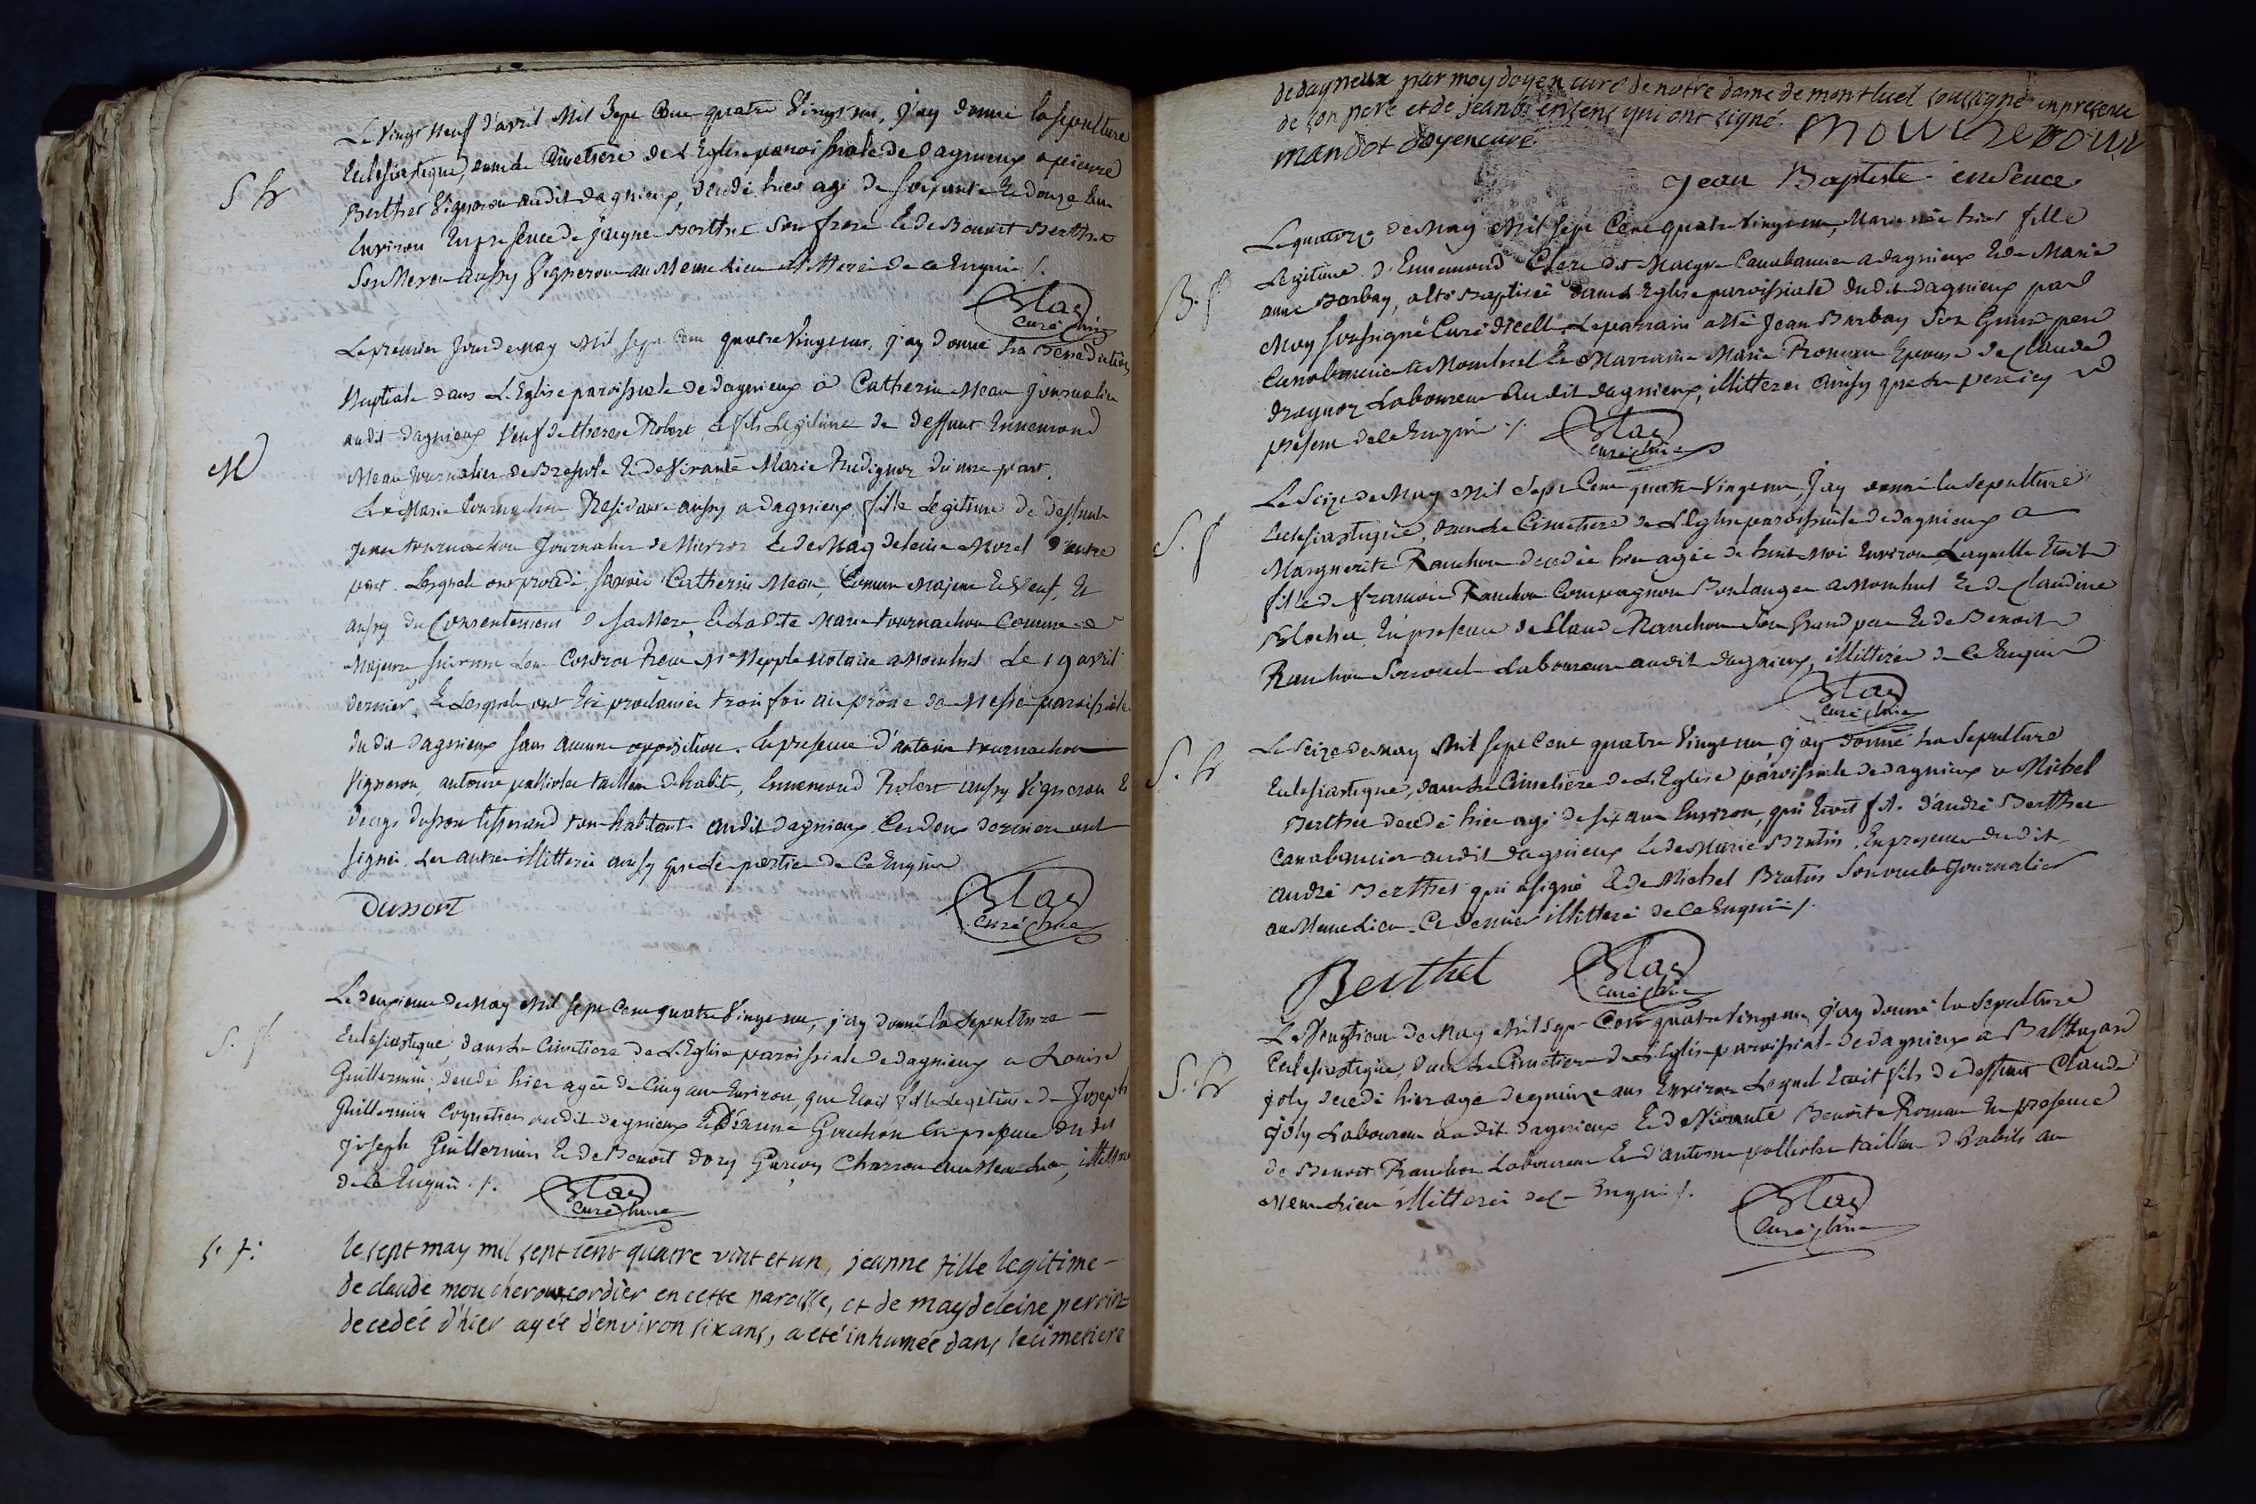 S h
Le Vingt Neuf d'avril Mil Sept Cent quatre Vingt un, j'ay donné la sepulture
Eclesiastique, dans le Cimetiere de L'Eglise paroissiale de dagnieux a pierre
Berthet Vigneron audit dagnieux, decedé hier agé de soixante et douze ans
Environ En presence de Berthet Son frere et de Benoit Berthet
Son Neveu aussy Vigneron au Meme Lieu illitterés de ce Enquis /.
Curé
M
Le premier Jour de may Mil sept Cent quatre Vingt un, j'ay donné La Benediction
Nuptiale dans L'Eglise paroissiale de dagnieux a Catherin Mean journalier
audit dagnieux Veuf de therese Robert, et fils Legitime de deffunt Ennemond
Mean Journalier de Bressole et de Vivante Marie d'une part,
Et Marie tournachon Residante aussy a dagnieux fille Legitime de deffunt
Jean tournachon Journalier de et de Magdeleine Morel d'autre
part. Lesquels ont procedé, savoir Catherin Mean, Comme Majeur et Veuf, et
aussy du Consentement de sa Mere, et Ladite Marie tournachon Comme
Majeure suivant Leur Contrat Reçu Me notaire a Montluel Le 19 avril
dernier, et Lesquels ont Eté proclamés trois fois au prône de Messe paroissiale
du dit dagnieux sans aucune opposition. En presence d'antoine tournachon
Vigneron, antoine tailleur d'habits, Ennemond Robert aussy Vigneron et
dussort tisserand tous habitants audit dagnieux Ces deux derniers ont
signé, Les autres illitterés aussy que Les parties de Ce Enquis
Dussort
Curé
S. f
Le deuxieme de May Mil Sept Cent quatre Vingt un, j'ay donné la Sepulture
Eclesiastique, dans Le Cimetiere de L'Eglise paroissiale de dagnieux a Louise
Guillermin, decedé hier agée de Cinq ans Environ, qui Etoit fille Legitime de Joseph
Guillermin audit dagnieux et d'Etienne En presence du dit
Joseph Guillermin et de Benoit Garçon Charron au Meme Lieu, illitterés
de Ce Enquis. /.
Curé
s. f:
le sept may mil sept cent quatre vint et un, jeanne fille legitime
de claude moucheroux cordier en cette paroisse, et de maydeleine perrin
decedée d'hier agée d'environ six ans, a eté inhumée dans le cimetiere
de dagneux par moy doyen curé de notre dame de montluel soussigné en presence
de son pere et de jean b. ensens qui ont signé. Moucheroux
mandot doyen curé
jean Baptiste insence
B. f
Le quatorze de May Mil sept Cent quatre Vingt un, Marie née hier fille
Legitime d'Ennemond Clerc dit Canabassier a dagnieux et de Marie
anne Barbay, a Eté Baptisée dans L'Eglise paroissiale dudit dagnieux par
Moy soussigné Curé d'icelle. Le parrain a Eté Jean Barbay Son Grand pere
Canabassier a Montluel et La Marraine Marie Roman Epouse de Claude
Laboureur audit dagnieux, illitterés aussy que Le pere icy
présent de Ce Enquis /.
Curé
S. f
Le Seize de May Mil Sept Cent quatre Vingt un, J'ay donné la Sepulture
Eclesiastique, dans Le Cimetiere de L'Eglise paroissiale de dagnieux a
Marguerite Ranchon decedée hier agée de huit Mois Environ Laquelle Etoit
fille de françois Ranchon Compagnon Boulanger a Montluel et de Claudine
En presence de Claude Ranchon Son Grand pere et de Benoit
Ranchon Son oncle Laboureurs audit dagnieux, illitterés de Ce Enquis
Curé
S. h
Le Seize de may Mil Sept Cent quatre Vingt un j'ay donné La Sepulture
Eclesiastique, dans Le Cimetiere de L'Eglise paroissiale de dagnieux a Michel
Berthet decedé hier agé de six ans Environ, qui Etoit fils d'andré Berthet
Canabassier audit dagnieux et de Marie Brutin, En presence du dit
André Berthet qui a signé et de Michel Brutin Son oncle Journalier
au Meme Lieu. Ce dernier illitteré de Ce Enquis /.
Berthet
Curé
S. h
Le de May Mil Sept Cent quatre Vingt un, j'ay donné la Sepulture
Eclesiastique, dans Le Cimetiere de L'Eglise paroissiale de dagnieux a Balthazard
Joly decedé hier agé de quinze ans Environ Lequel Etoit fils de deffunt Claude
Joly Laboureur audit dagnieux et de Vivante Benoite Roman En presence
de Benoit Ranchon Laboureur et d'antoine tailleur d'habits au
Meme Lieu illitterés de Ce Enquis /.
Curé